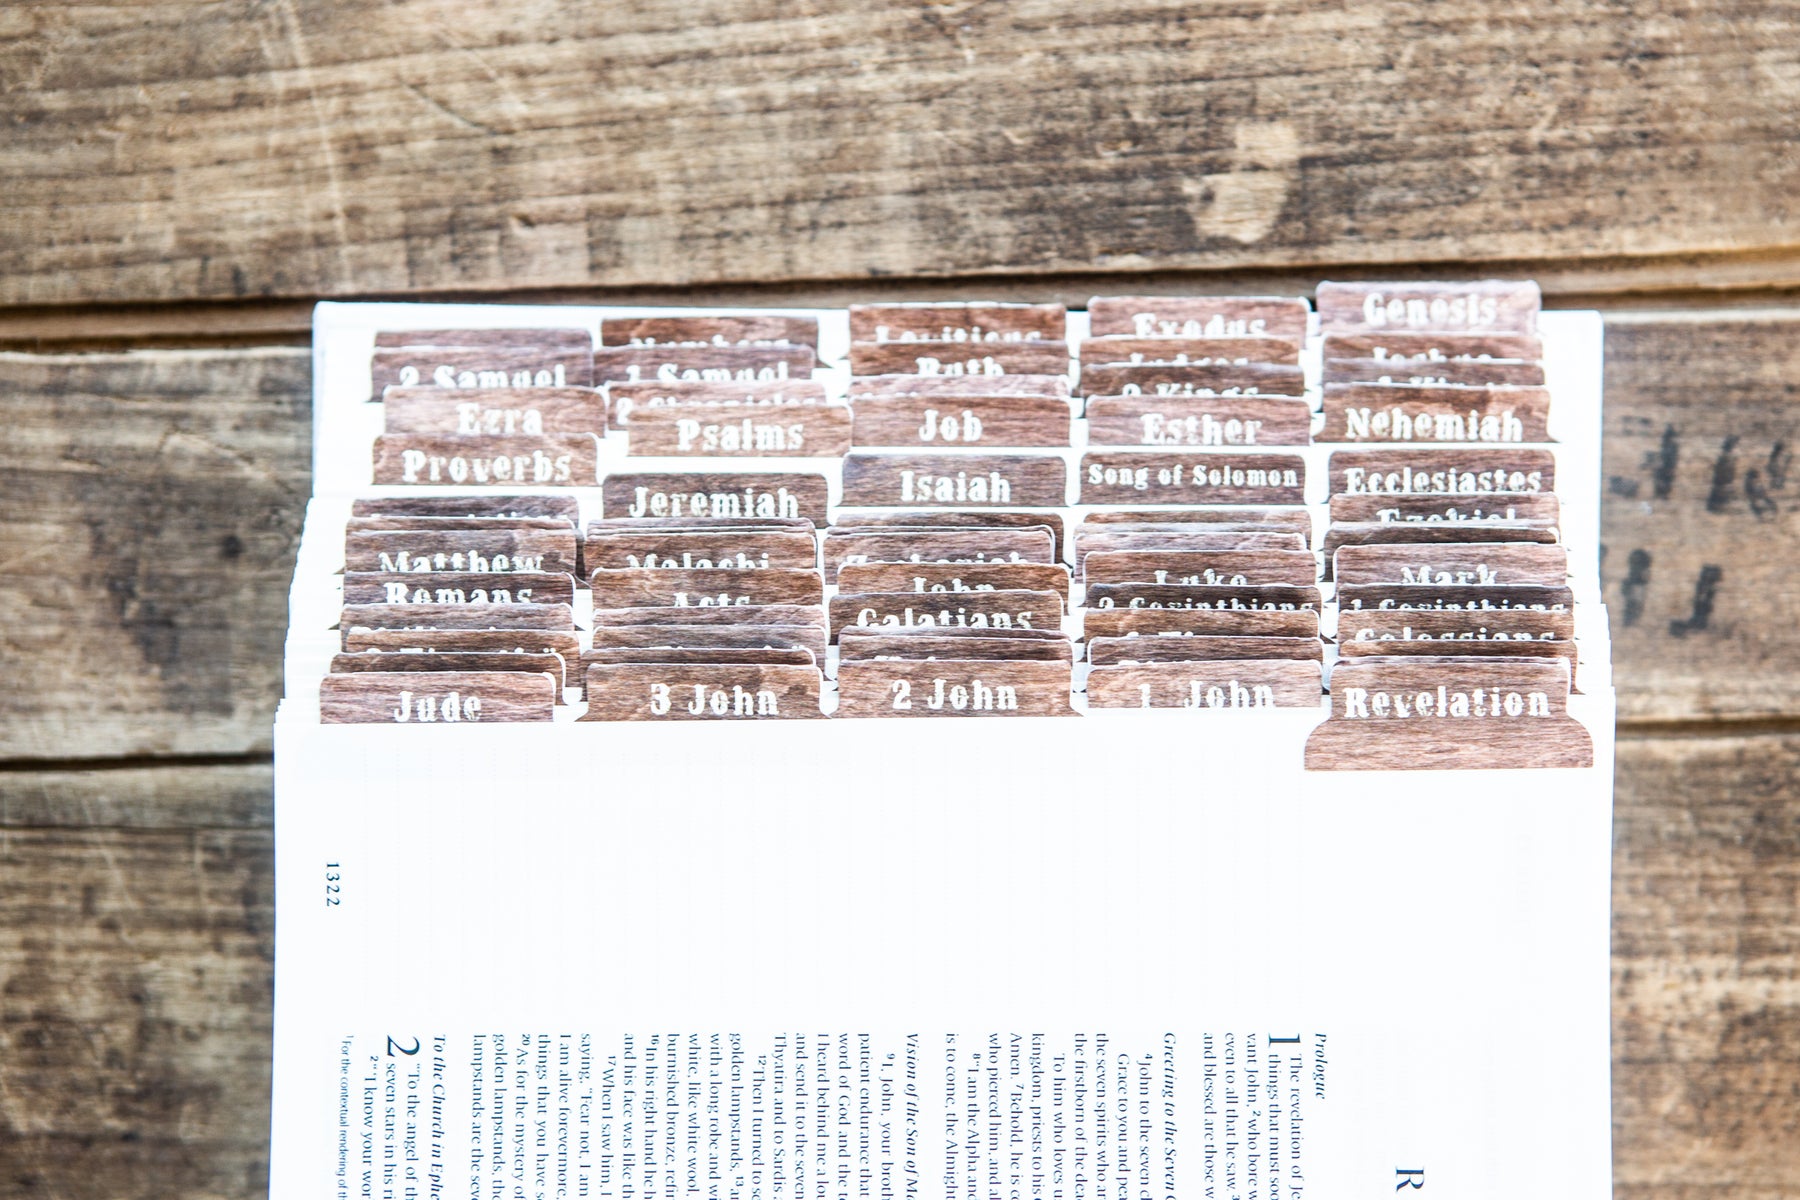 Genesis
Exodus
Leviticus
Numbers
Joshua
Judges
Ruth
1 Samuel
2 Samuel
2 Kings
2 Chronicles
Ezra
Nehemiah
Esther
Job
Psalms
Proverbs
Ecclesiastes
Song of Solomon
Isaiah
Jeremiah
Ezekiel
Zechariah
Malachi
Matthew
Mark
Luke
John
Acts
Romans
1 Corinthians
2 Corinthians
Galatians
Colossians
1 John
2 John
3 John
Jude
Revelation
1322
R
Prologue
1 The revelation of Je
things that must soo
vant John, 2 who bore w
even to all that he saw, 3
and blessed are those w
Greeting to the Seven C
4 John to the seven ch
Grace to you and pea
the seven spirits who ar
the firstborn of the dea
To him who loves u
kingdom, priests to his
Amen. 7 Behold, he is co
who pierced him, and al
8 "I am the Alpha and
is to come, the Almight
Vision of the Son of Ma
9 I, John, your broth
patient endurance that
word of God and the te
I heard behind me a lou
and send it to the seven
Thyatira and to Sardis a
12 Then I turned to se
golden lampstands, 13 an
with a long robe and wi
white, like white wool,
burnished bronze, refi
16 In his right hand he h
and his face was like th
17 When I saw him, I
saying, "Fear not, I am
I am alive forevermore,
things that you have s
20 As for the mystery of
golden lampstands, the
lampstands are the seve
To the Church in Ephe
2 "To the angel of th
seven stars in his ri
2 "'I know your wor
1 For the contextual rendering of th